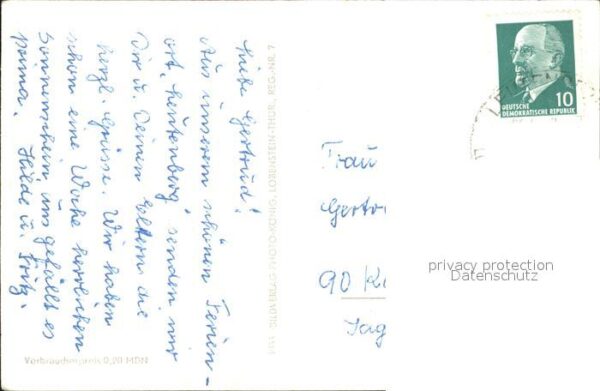 Liebe Gertrud!
Aus unserem schönen Ferien-
ort "Leutenberg" senden wir
Dir u. Deinen Eltern die
herzl. Grüsse. Wir haben
schon eine Woche herrlichen
Sonnenschein, uns gefällt es
prima. Hilde u. Fritz.
BILDVERLAG PHOTO-KÖNIG, LOBENSTEIN-THÜR. REG.-NR. 7
Verbraucherpreis 0,20 MDN
DEUTSCHE
DEMOKRATISCHE REPUBLIK
10
Frau
Gertr
90 K
Jag
privacy protection
Datenschutz